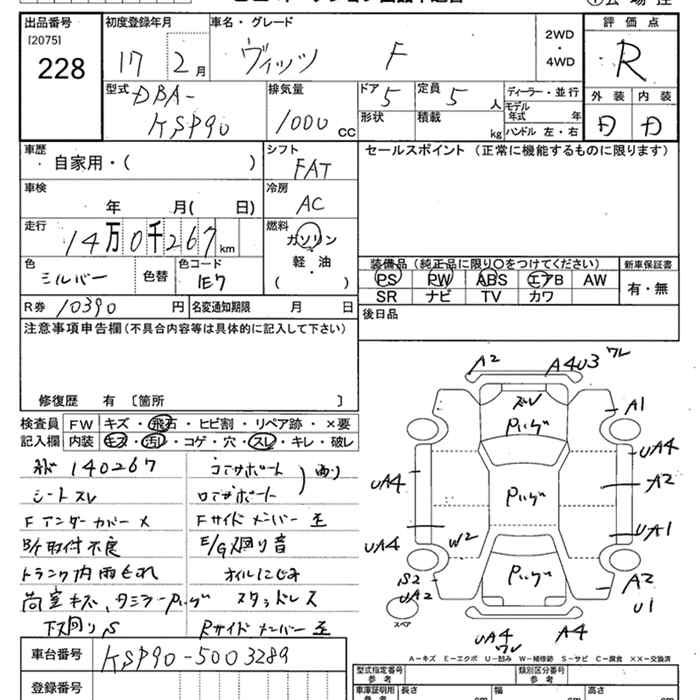 出品番号
[2075]
228
初度登録年月
17 2月
車名・グレード
ヴィッツ F
2WD
・
4WD
評価点
R
型式
DBA-
KSP90
排気量
1000 CC
ドア 5
定員 5 人
形状
積載 kg
ディーラー・並行
モデル年式 年
ハンドル 左・右
外装 内装
D D
車歴
自家用・( )
シフト
FAT
セールスポイント (正常に機能するものに限ります)
車検
年 月( 日)
冷房
AC
走行
14万0千267km
燃料
ガソリン
軽・油
( )
色
シルバー
色替
色コード
1E7
装備品 (純正品に限り〇をつけてください)
PS PW ABS エアB AW
SR ナビ TV カワ
新車保証書
有・無
R券 10390円
名変通知期限 月 日
後日品
注意事項申告欄 (不具合内容等は具体的に記入して下さい)
修復歴 有 〔箇所 〕
検査員記入欄
FW キズ・飛石・ヒビ割・リペア跡・×要
内装 キズ・汚レ・コゲ・穴・スレ・キレ・破レ
140267
シートスレ
Fアンダーカバー×
B/F取付不良
トランク内雨もれ
荷室キズ、
下廻りS
コアサポート
ロアサポート
Fサイドメンバー歪
E/G廻り音
オイルにじみ
スタッドレス
Rサイドメンバー歪
A2
A4U3 ワレ
ズレ
A1
UA4
UA4
A2
UA4
UA1
W2
S2
UA2
A2
U1
スペア
UA4
ワレ
A4
A-キズ E-エクボ U-凹み W-補修跡 S-サビ C-腐食 ××-交換済
車台番号
KSP90-5003289
登録番号
型式指定番号
参考
類別区分番号
参考
車庫証明用
参考
長さ cm
幅 cm
高さ cm